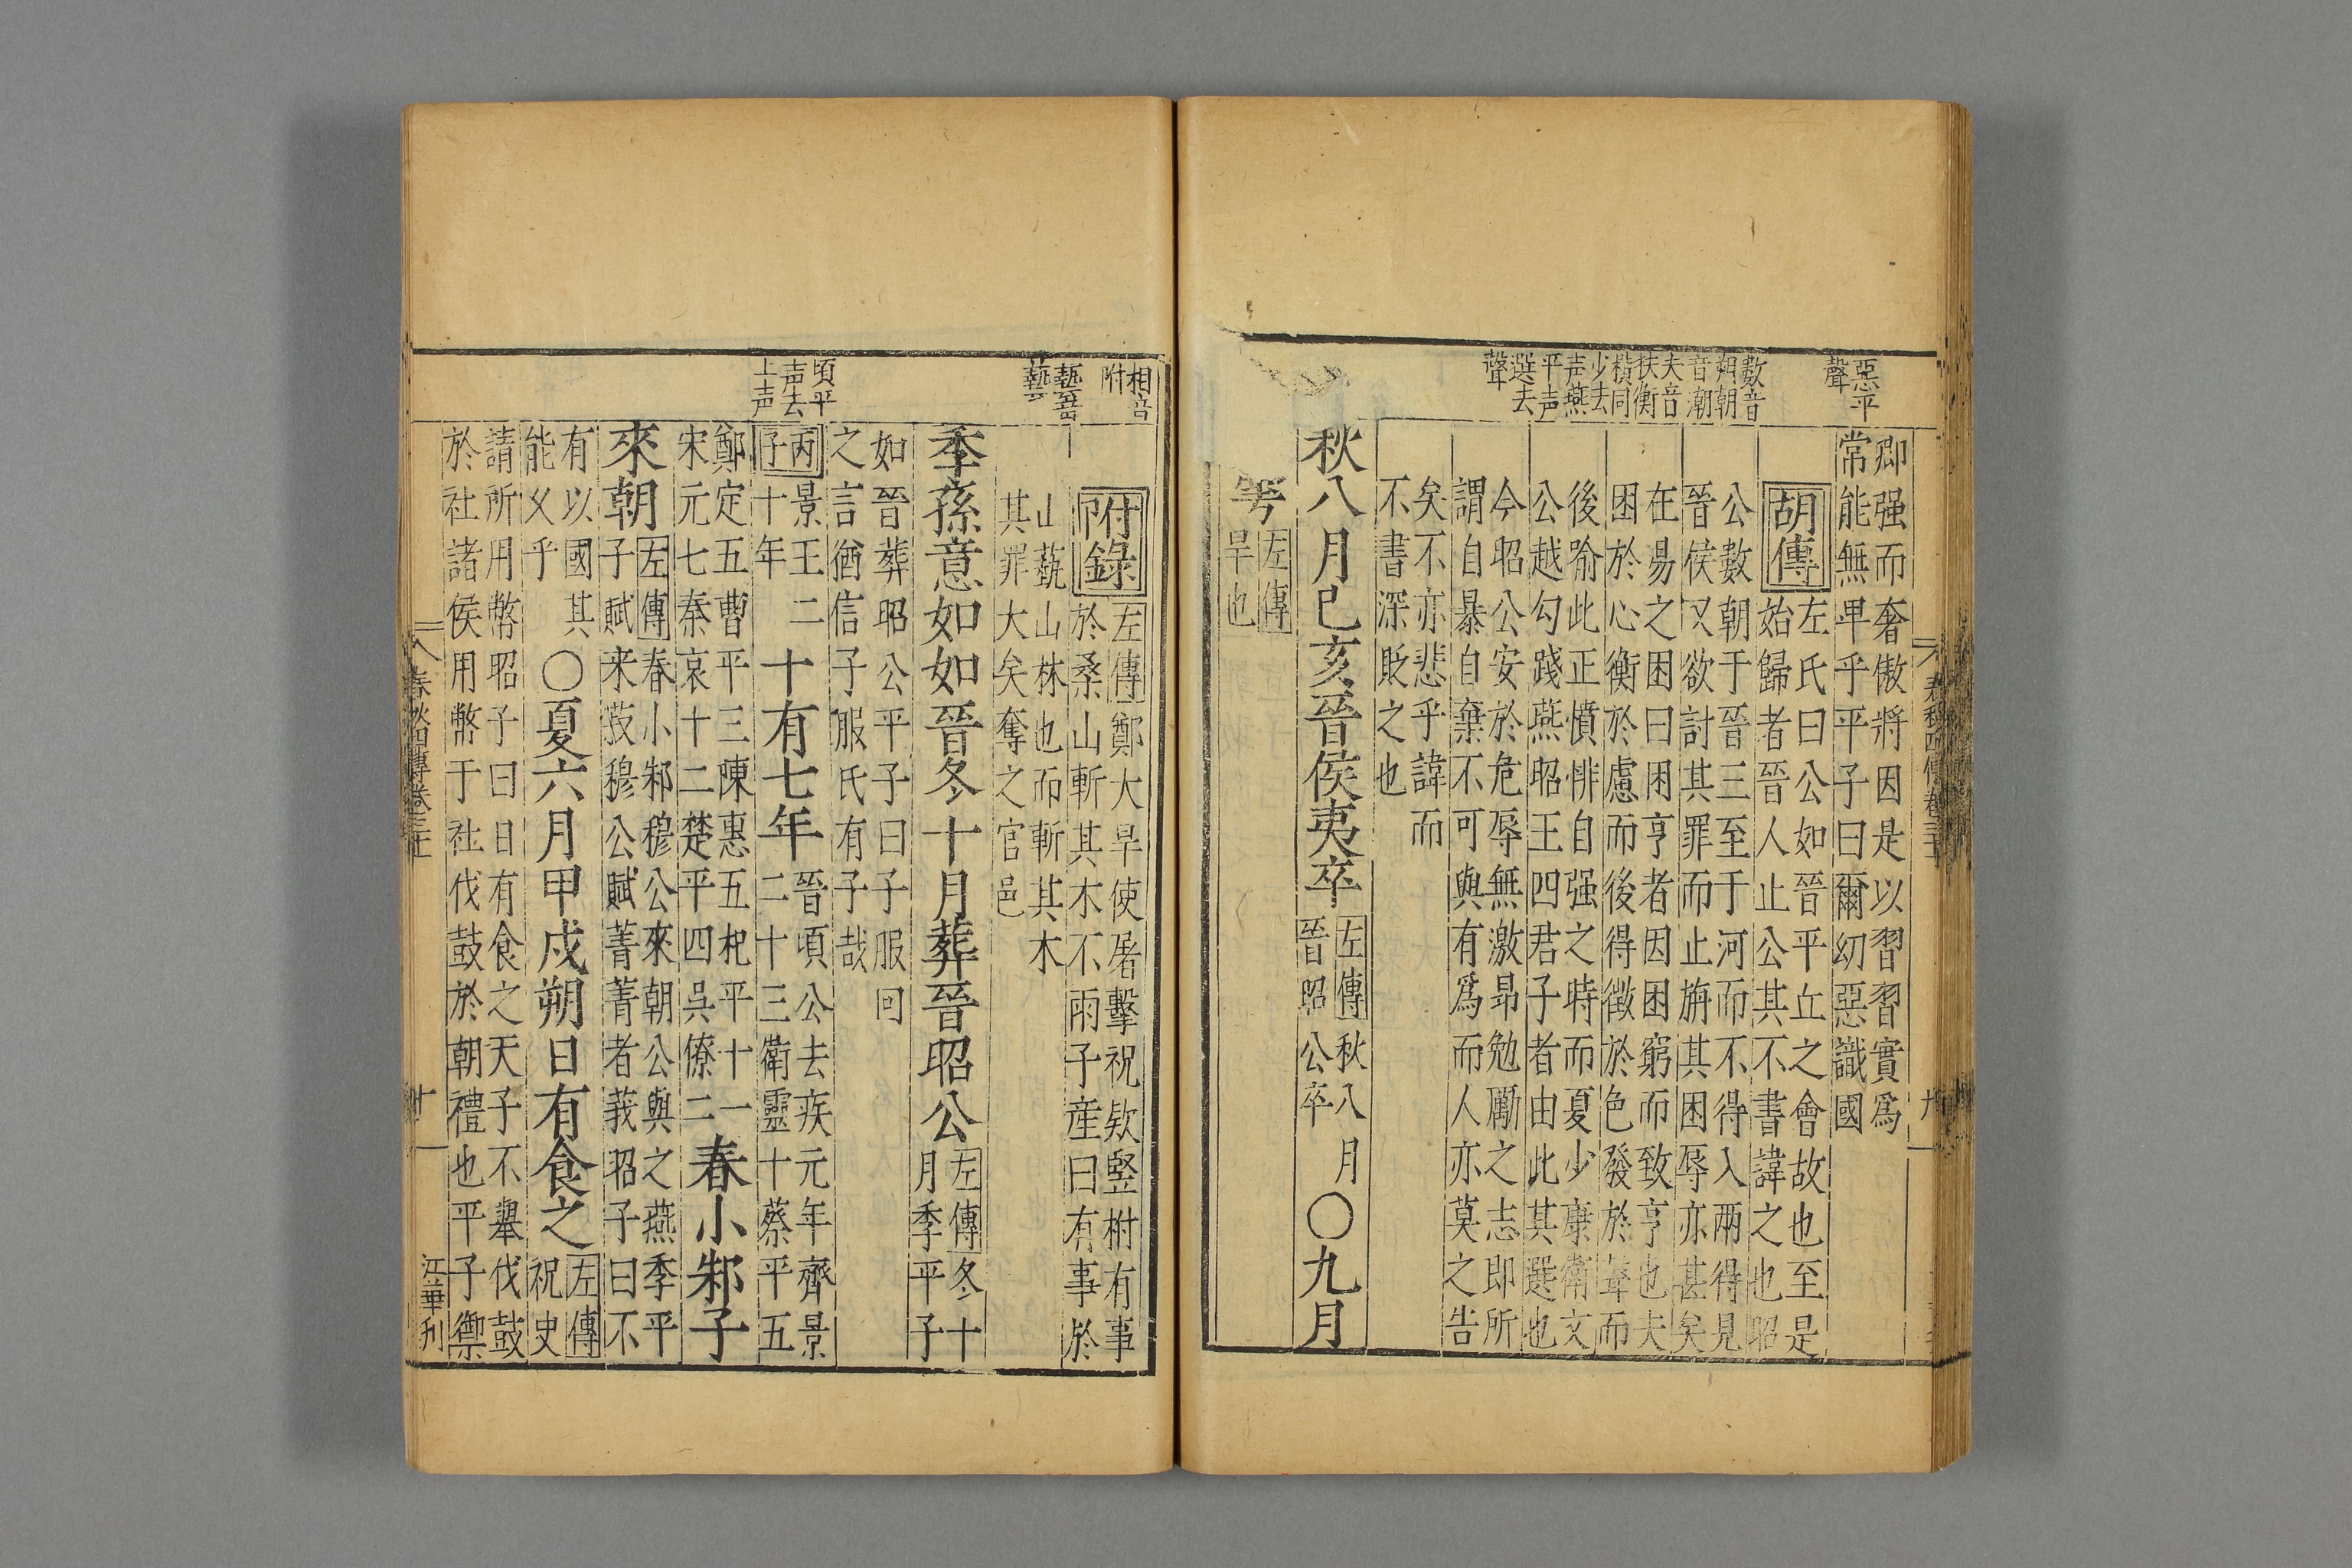 惡平
聲
卿强而奢傲將因是以習習實爲
常能無卑乎平子曰爾幼惡識國
胡傳
左氏曰公如晉平丘之會故也至是
始歸者晉人止公其不書諱之也昭
數音
朔朝
音潮
夫音
扶衡
横同
少去
声燕
平声
選去
聲
公數朝于晉三至于河而不得入兩得見
晉侯又欲討其罪而止旃其困辱亦甚矣
在易之困曰困亨者因困窮而致亨也夫
困於心衡於慮而後得徵於色發於聲而
後喻此正憤悱自强之時而夏少康衛文
公越勾踐燕昭王四君子者由此其選也
今昭公安於危辱無激昂勉勵之志即所
謂自暴自棄不可與有爲而人亦莫之告
矣不亦悲乎諱而
不書深貶之也
秋八月己亥晉侯夷卒
左傳秋八月
晉昭公卒
〇九月
雩
左傳
旱也
春秋四傳卷三十
九
相音
附
藝音
附錄
左傳鄭大旱使屠擊祝欵竪柎有事
於桑山斬其木不雨子産曰有事於
山蓺山林也而斬其木
其罪大矣奪之官邑
季孫意如如晉冬十月葬晉昭公
左傳冬十
月季平子
如晉葬昭公平子曰子服回
之言猶信子服氏有子哉
頃平
声去
上声
丙子
景王二
十年
十有七年
晉頃公去疾元年齊景
二十三衛靈十蔡平五
鄭定五曹平三陳惠五杞平十一
宋元七秦哀十二楚平四吳僚二
春小邾子
來朝
左傳春小邾穆公來朝公與之燕季平
子賦采菽穆公賦菁菁者莪昭子曰不
有以國其
能乂乎
〇夏六月甲戌朔日有食之
左傳
祝史
請所用幣昭子曰日有食之天子不舉伐鼓
於社諸侯用幣于社伐鼓於朝禮也平子禦
春秋四傳卷三十
十
江華刋